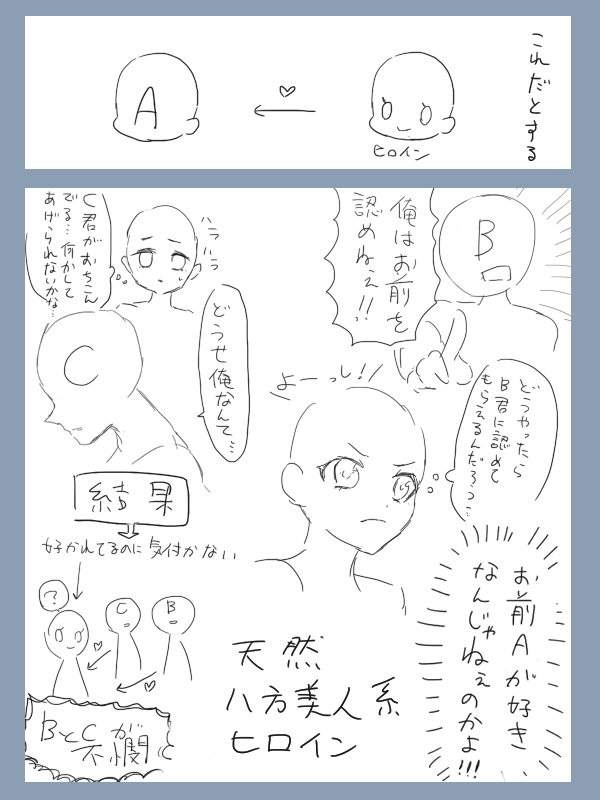 これだとする
A
♡
ヒロイン
B
俺はお前を
認めねぇ!!
ハラハラ
C君がおちこん
でる…何かして
あげられないかな…
C
どうせ俺なんて…
どうやったら
B君に認めて
もらえるんだろう…
よーっし!!
お前Aが好き
なんじゃねぇのかよ!!!
結果
好かれてるのに気付かない
?
C
B
♡
♡
BとCが
不憫
天然
八方美人系
ヒロイン